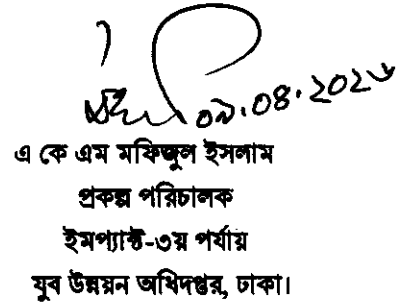 ০৯.০৪.২০২৬
এ কে এম মফিজুল ইসলাম
প্রকল্প পরিচালক
ইমপ্যাক্ট-৩য় পর্যায়
যুব উন্নয়ন অধিদপ্তর, ঢাকা।